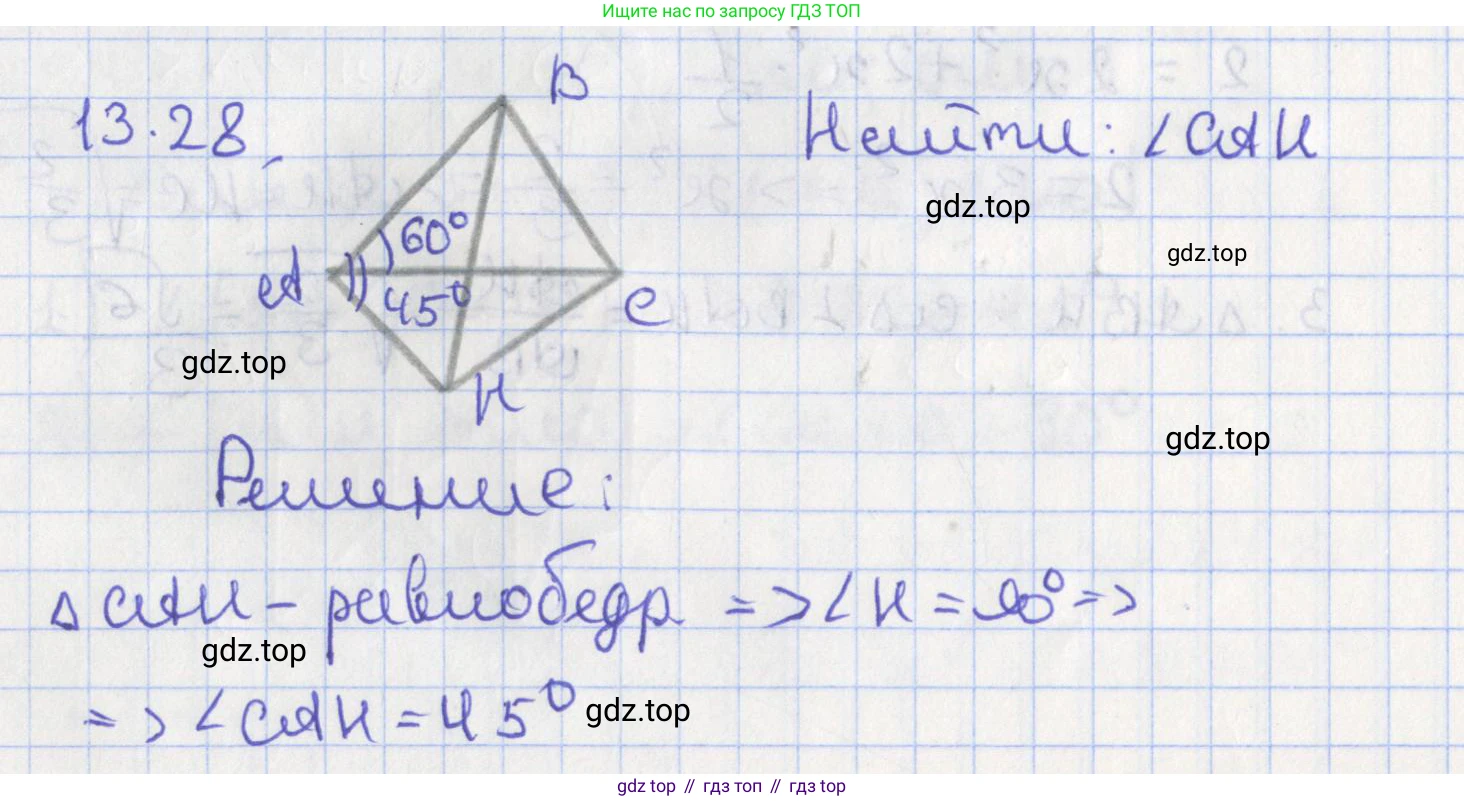 Ищите нас по запросу ГДЗ ТОП
13.28.
B
Найти: ∠CAH
gdz.top
gdz.top
60°
A
45°
C
gdz.top
H
gdz.top
Решение:
△CAH - равнобедр => ∠H = 90° =>
gdz.top
=> ∠CAH = 45°
gdz.top
gdz.top // гдз топ // гдз top